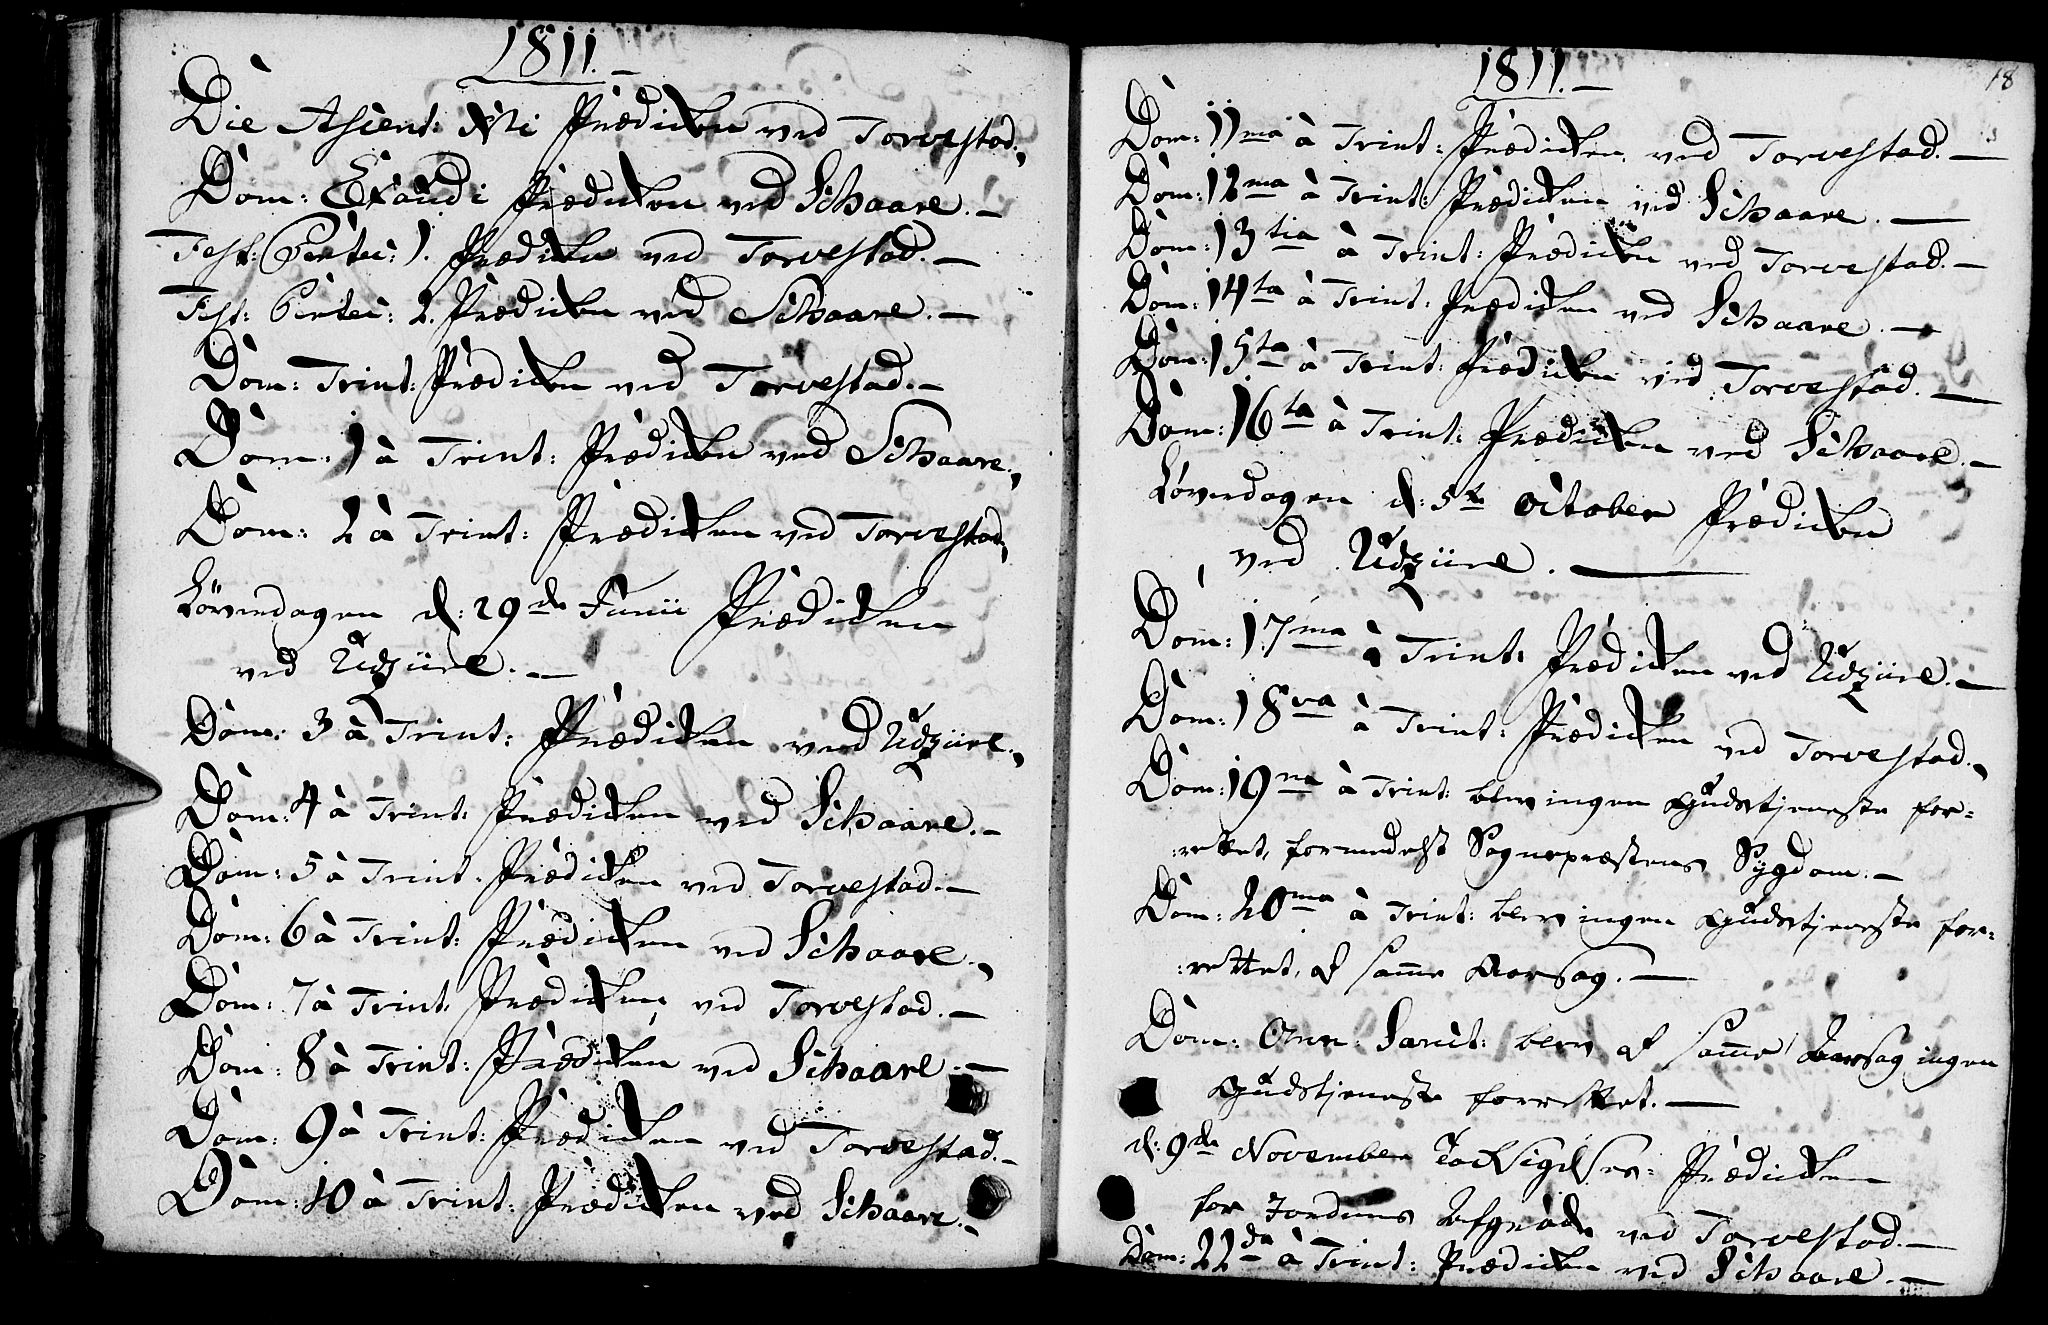 1811.
Die Ascent: Xti Prædiken ved Torvestad.
Dom: Exaudi Prædiken ved Schaare.
Fest: Pentec: 1. Prædiken ved Torvestad.
Fest: Pentec: 2. Prædiken ved Schaare.
Dom: Trint: Prædiken ved Torvestad.
Dom: 1 à Trint: Prædiken ved Schaare.
Dom: 2 à Trint: Prædiken ved Torvestad.
Løverdagen d: 29de Junii Prædiken
ved Udziire.
Dom: 3 à Trint: Prædiken ved Udziire.
Dom: 4 à Trint: Prædiken ved Schaare.
Dom: 5 à Trint: Prædiken ved Torvestad.
Dom: 6 à Trint: Prædiken ved Schaare.
Dom: 7 à Trint: Prædiken ved Torvestad.
Dom: 8 à Trint: Prædiken ved Schaare.
Dom: 9 à Trint: Prædiken ved Torvestad.
Dom: 10 à Trint: Prædiken ved Schaare.
18
1811.
Dom: 11ma à Trint: Prædiken ved Torvestad.
Dom: 12ma à Trint: Prædiken ved Schaare.
Dom: 13tia à Trint: Prædiken ved Torvestad.
Dom: 14ta à Trint: Prædiken ved Schaare.
Dom: 15ta à Trint: Prædiken ved Torvestad.
Dom: 16ta à Trint: Prædiken ved Schaare.
Løverdagen d: 5te October Prædiken
ved Udziire.
Dom: 17ma à Trint: Prædiken ved Udziire.
Dom: 18va à Trint: Prædiken ved Torvestad.
Dom: 19na à Trint: blev ingen Gudstjeneste for=
:rettet, formedelst Sognepræstens Sygdom.
Dom: 20ma à Trint: blev ingen Gudstjeneste for=
:rettet, af samme Aarsag.
Dom: Omn: Sanct: blev af samme Aarsag ingen
Gudstjeneste forrettet.
d: 9de November Tacksigelses= Prædiken
for Jordens Afgrøde ved Torvestad.
Dom: 22da à Trint: Prædiken ved Schaare.